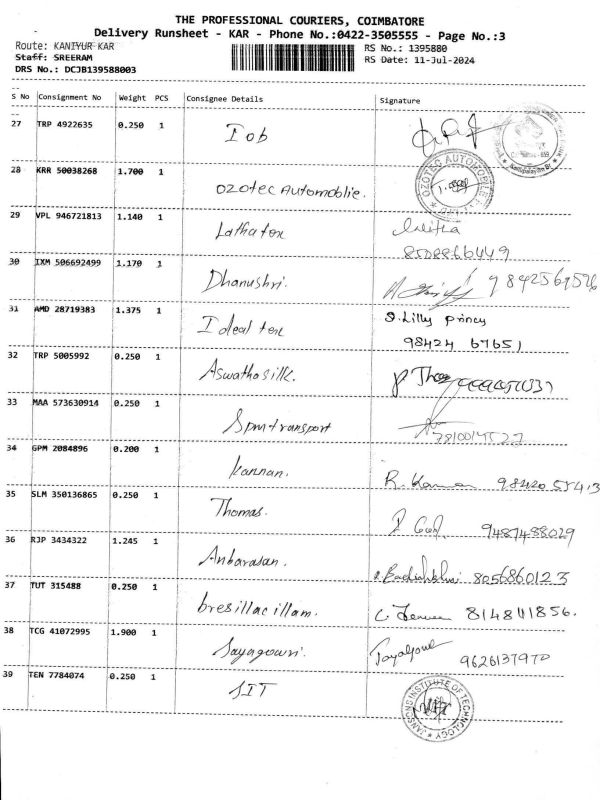 THE PROFESSIONAL COURIERS, COIMBATORE
Delivery Runsheet - KAR - Phone No.:0422-3505555 - Page No.:3
Route: KANIYUR KAR RS No.: 1395880
Staff: SREERAM RS Date: 11-Jul-2024
DRS No.: DCJB139588003
S No Consignment No Weight PCS Consignee Details Signature
27 TRP 4922635 0.250 1 Iob
28 KRR 50038268 1.700 1 Ozotec Automoblie. OZOTEC AUTOMOBILE
29 VPL 946721813 1.140 1 Lathatex Lalitha
8508866449
30 IXM 506692499 1.170 1 Dhanushri. 9842569526
31 AMD 28719383 1.375 1 Ideal tex S. Lilly princy
98424 67651
32 TRP 5005992 0.250 1 Aswathasilk.
33 MAA 573630914 0.250 1 Spm transport
34 GPM 2084896 0.200 1 kannan. R. Kannan
35 SLM 350136865 0.250 1 Thomas. 9487488029
36 RJP 3434322 1.245 1 Anbarasan. 8056860123
37 TUT 315488 0.250 1 bresillac illam.
38 TCG 41072995 1.900 1 Jayagowri. 9626137970
39 TEN 7784074 0.250 1 JIT JANSONS INSTITUTE OF TECHNOLOGY